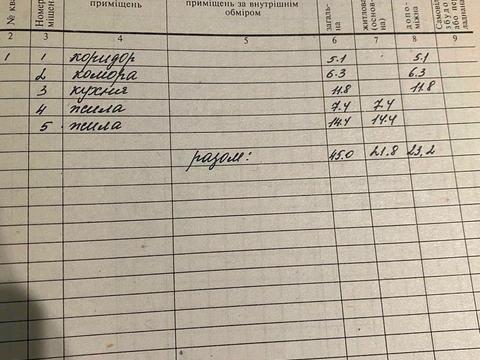 № ква Номер приміщень приміщень за внутрішнім загаль- житлова допо- Самовіл
міщен обміром на (основ- міжна збудо
на) або пер
ладнан
2 3 4 5 6 7 8 9
1 1 коридор 5.1 5.1
2 комора 6.3 6.3
3 кухня 11.8 11.8
4 жила 7.4 7.4
5 жила 14.4 14.4
разом: 45.0 21.8 23,2